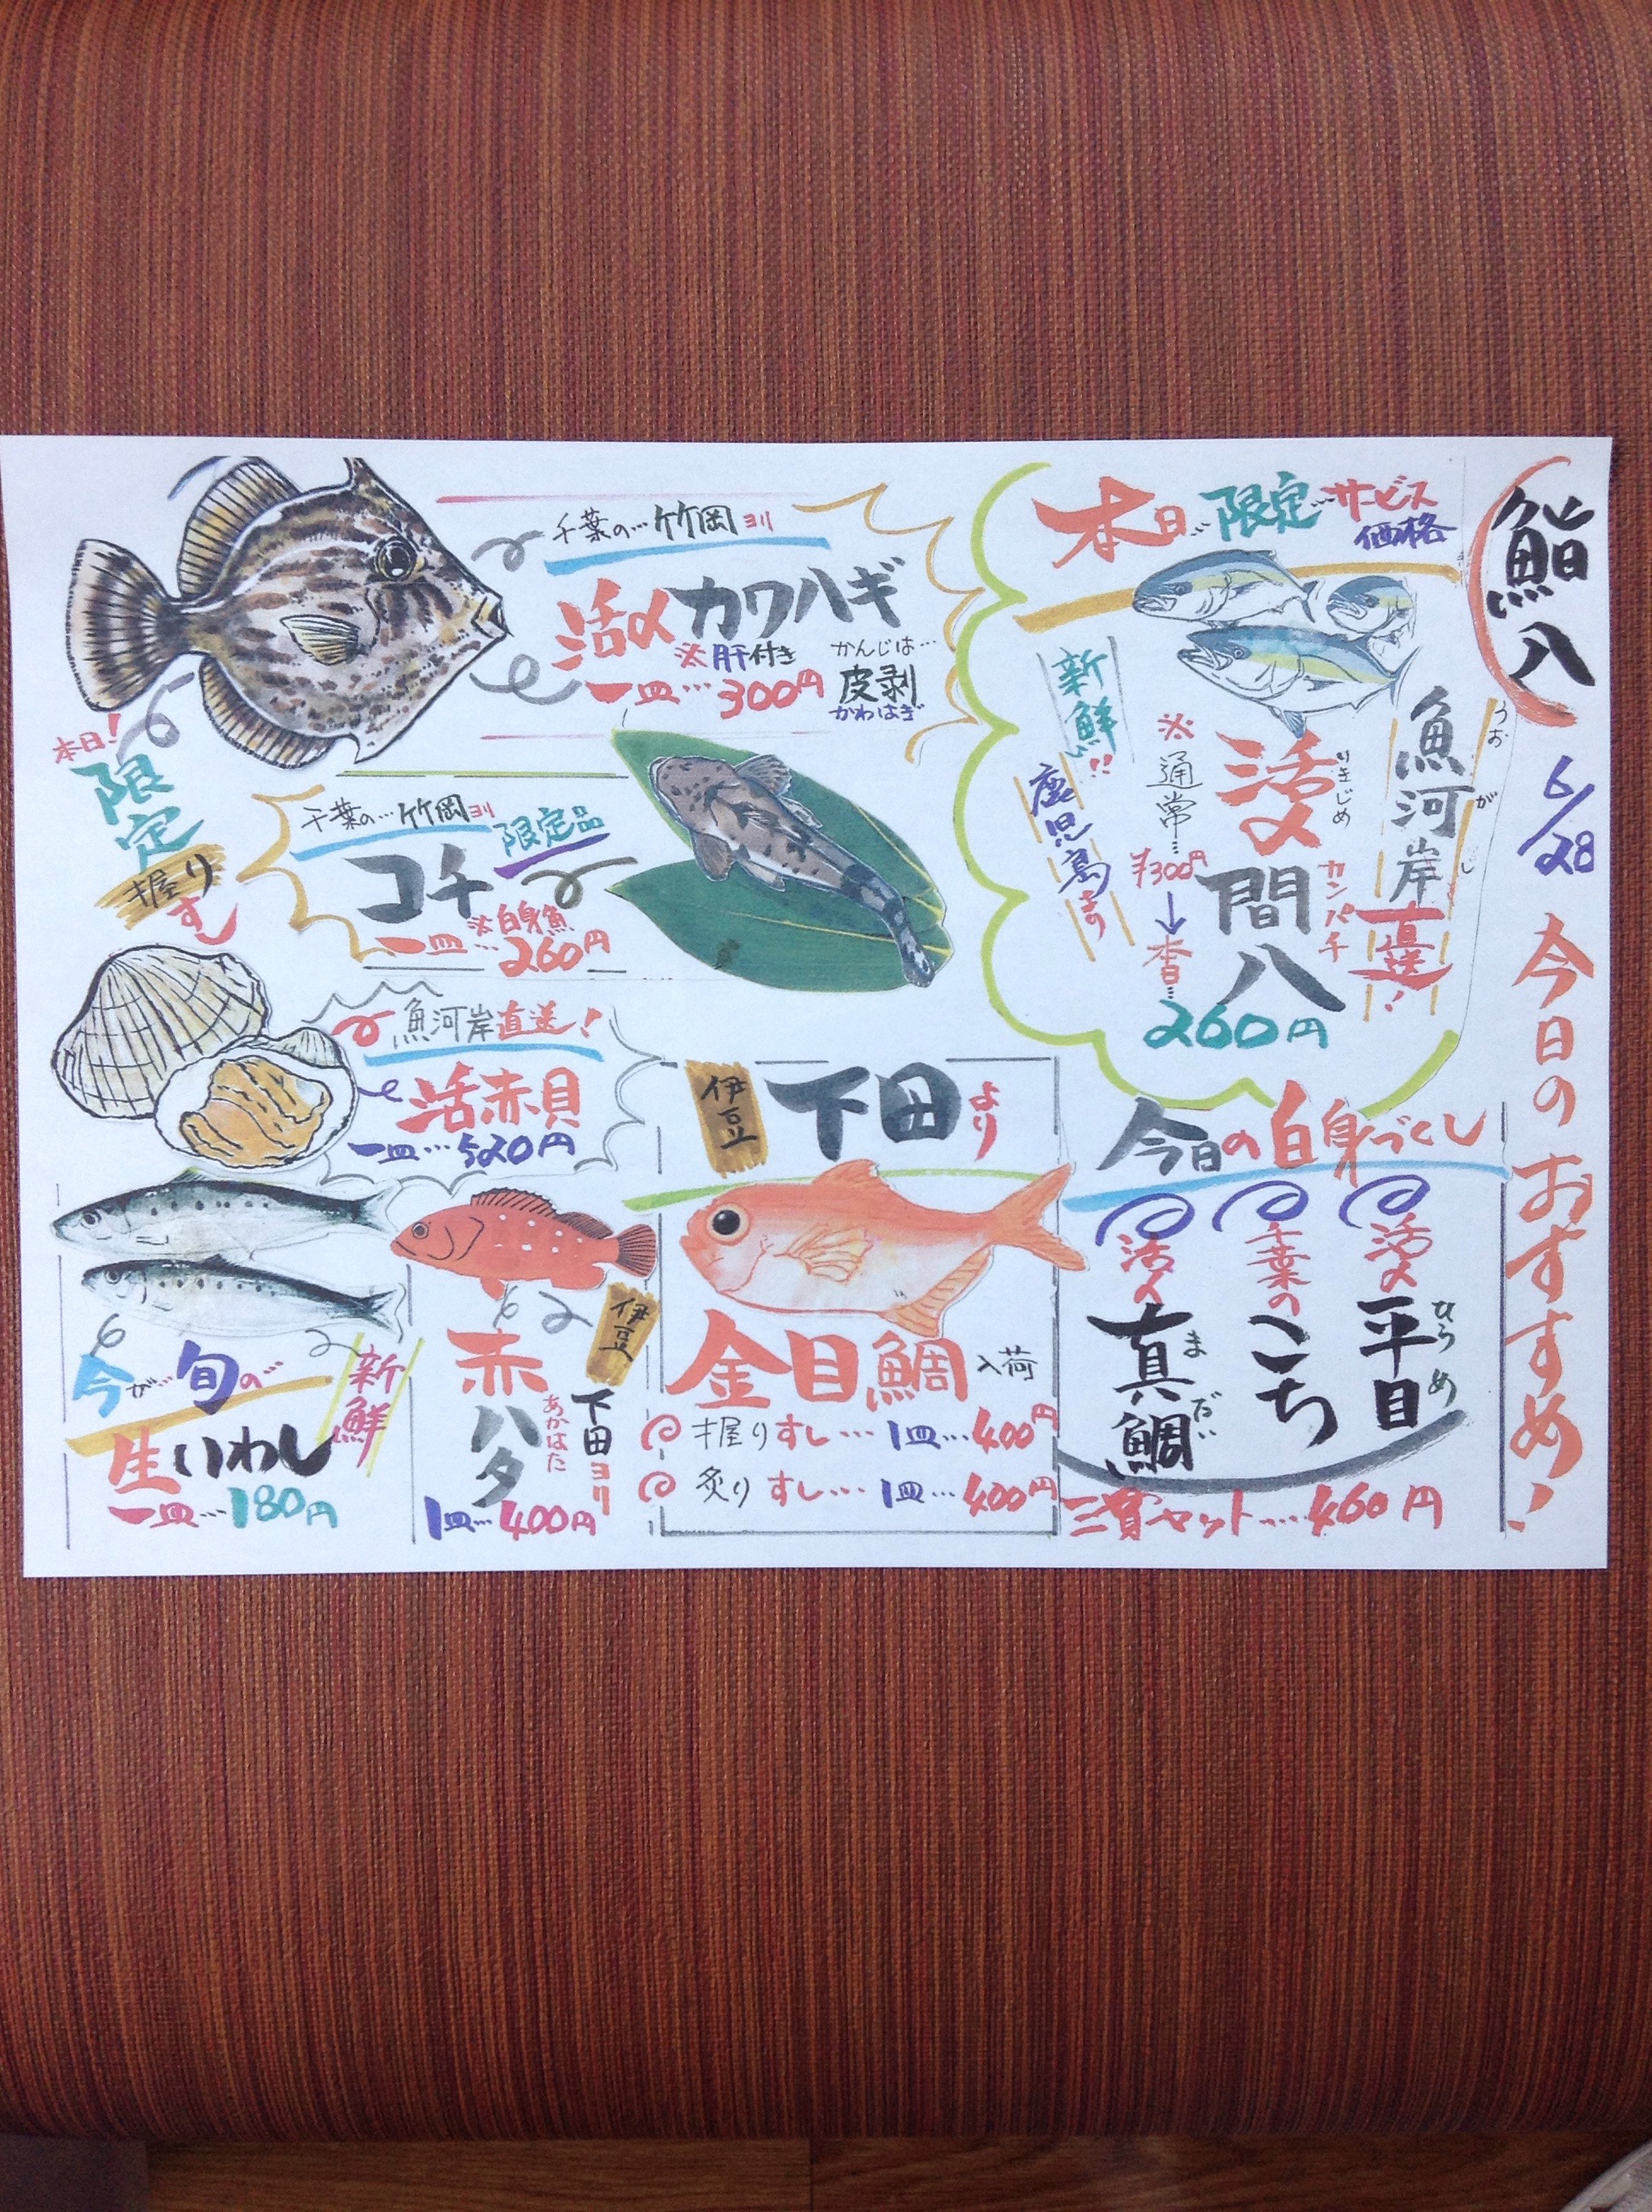 鮨八
6/28
今日のおすすめ!
本日…限定…サービス
価格
魚河岸
うおがし
直送!
活〆
いきじめ
間八
カンパチ
※通常…
¥300円
↓
本日…
260円
新鮮!!
鹿児島より
千葉の…竹岡ヨリ
活〆カワハギ
※肝付き
一皿…300円
かんじは…
皮剥
かわはぎ
本日!
限定
握りすし
千葉の…竹岡ヨリ
限定品
コチ
※白身魚
一皿…260円
魚河岸直送!
活赤貝
一皿…520円
今日の白身づくし
活〆
平目
ひらめ
千葉の
こち
活〆
真鯛
まだい
三貫セット……460円
伊豆
下田より
金目鯛入荷
握りすし…1皿…400円
炙りすし…1皿…400円
伊豆
下田ヨリ
赤ハタ
あかはた
1皿…400円
今が…旬の…
新鮮
生いわし
一皿…180円